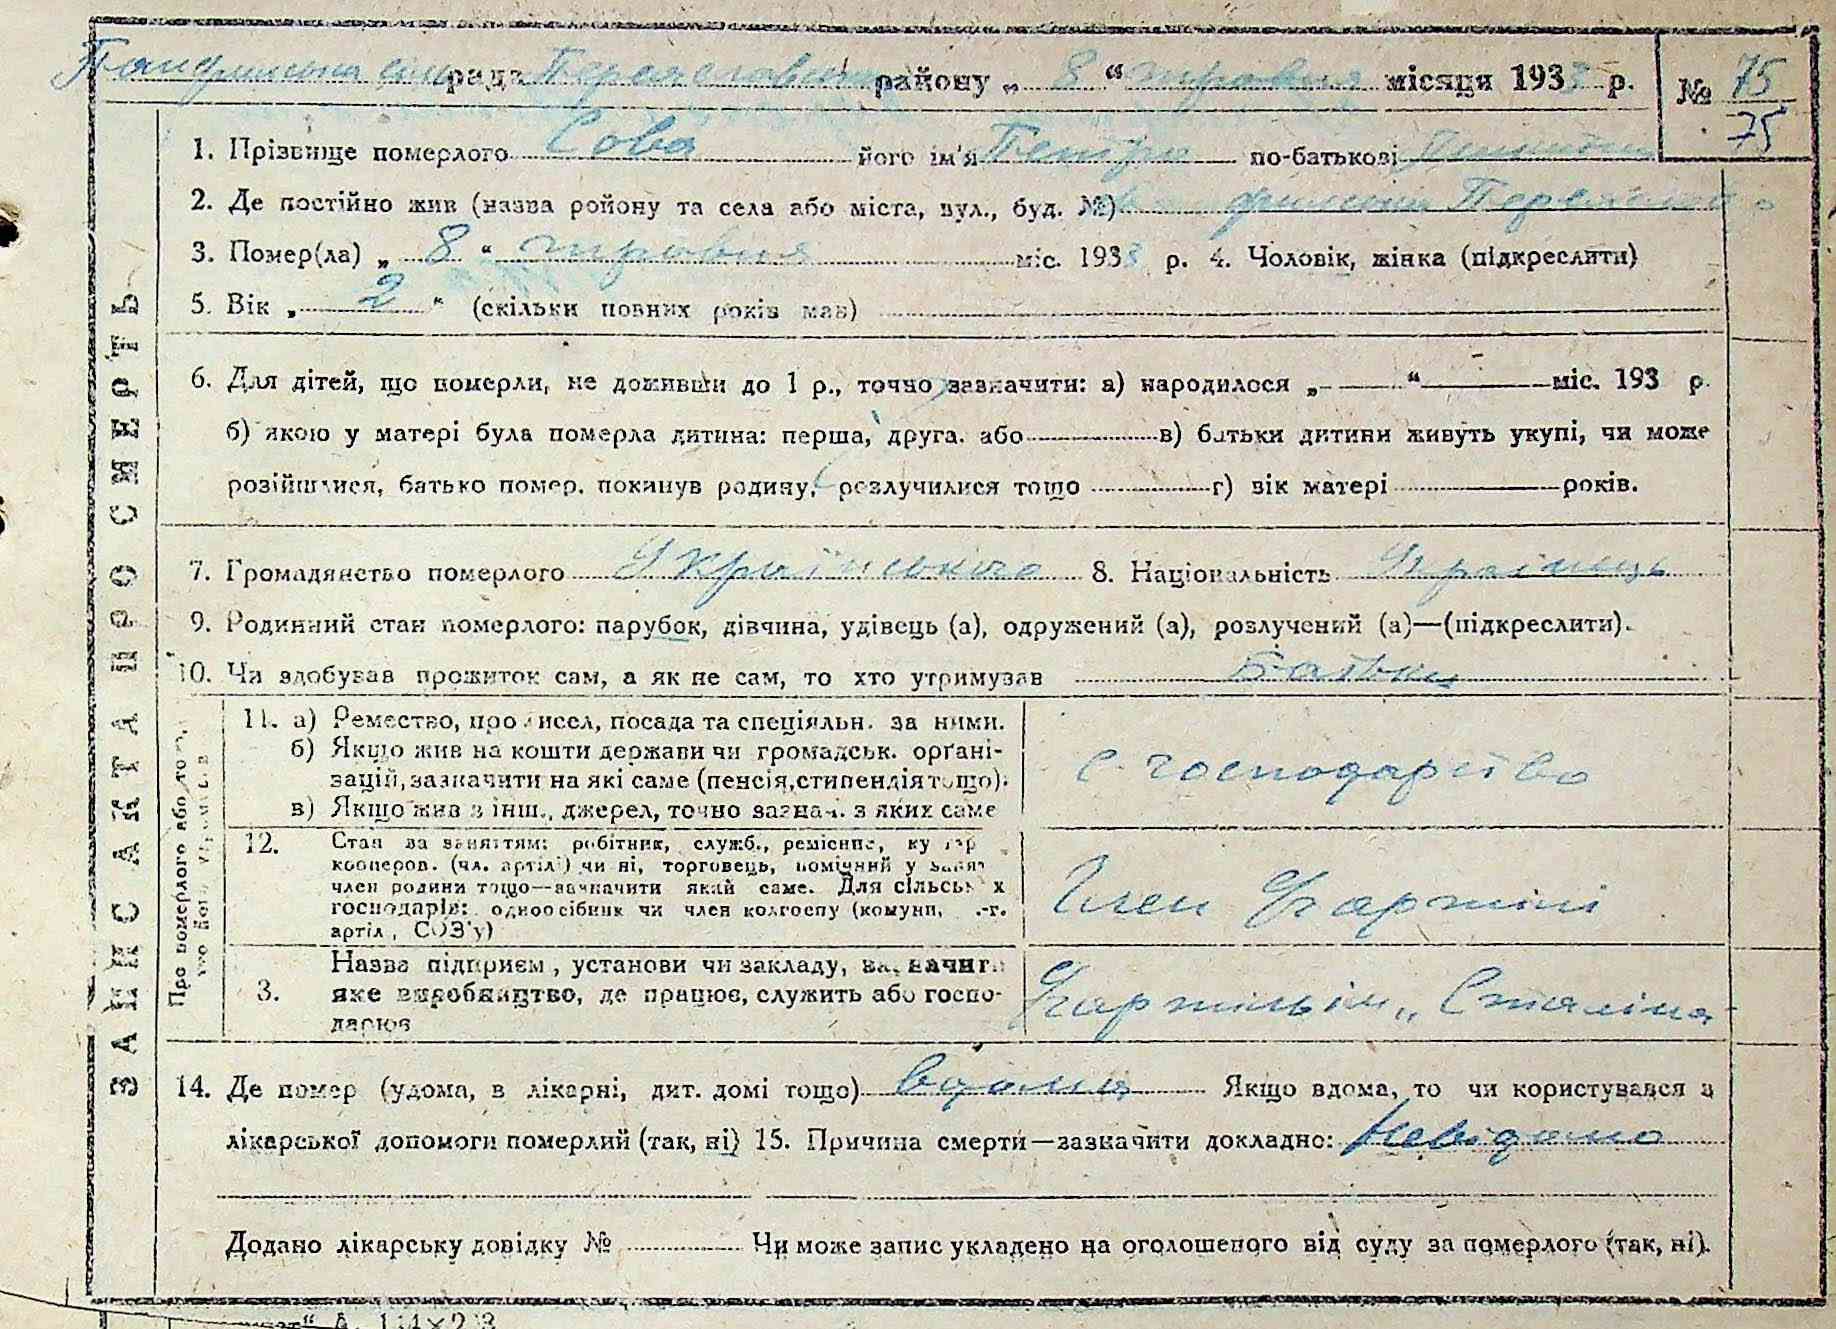 рада Переяславськ району „ 8 “ травня місяця 1933 р. № 75
75
1. Прізвище померлого Сова його ім'я Петро по-батькові
2. Де постійно жив (назва ройону та села або міста, вул., буд. №)
3. Помер(ла) „ 8 “ травня міс. 1933 р. 4. Чоловік, жінка (підкреслити)
5. Вік „ 2 “ (скільки повних років мав)
6. Для дітей, що померли, не доживши до 1 р., точно зазначити: а) народилося „ — “ — міс. 193 р.
б) якою у матері була померла дитина: перша, друга. або — в) батьки дитини живуть укупі, чи може
розійшлися, батько помер. покинув родину, розлучилися тощо — г) вік матері — років.
7. Громадянство померлого Українського 8. Національність Українець
9. Родинний стан померлого: парубок, дівчина, удівець (а), одружений (а), розлучений (а)—(підкреслити).
10. Чи здобував прожиток сам, а як не сам, то хто утримував Батьки
ЗАПИС АКТА ПРО СМЕРТЬ
Про померлого або того,
11. а) Ремество, про исел, посада та спеціяльн. за ними.
б) Якщо жив на кошти держави чи громадськ. орґані-
зацій, зазначити на які саме (пенсія, стипендія тощо).
в) Якщо жив з інш., джерел, точно зазнач. з яких саме
с. господарство
12. Стан за заняттям: робітник, служб., ремісник,
кооперов. (чл. артілі) чи ні, торговець, помічний у
член родини тощо—зазначити який саме. Для сільськ х
господарів: одноосібник чи член колгоспу (комуни, .-г.
артіл , СОЗ'у)
Член С/г артілі
3. Назва підприєм , установи чи закладу, зазначити
яке виробництво, де працює, служить або госпо-
дарює
Сталіна
14. Де помер (удома, в лікарні, дит. домі тощо) вдома Якщо вдома, то чи користувався з
лікарської допомоги померлий (так, ні) 15. Причина смерти—зазначити докладно: Невідомо
Додано лікарську довідку № Чи може запис укладено на оголошеного від суду за померлого (так, ні).